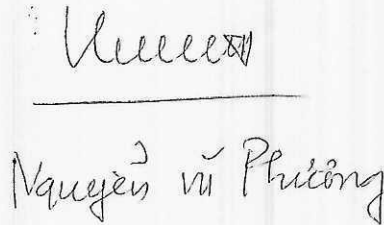 Nguyễn vũ Phương